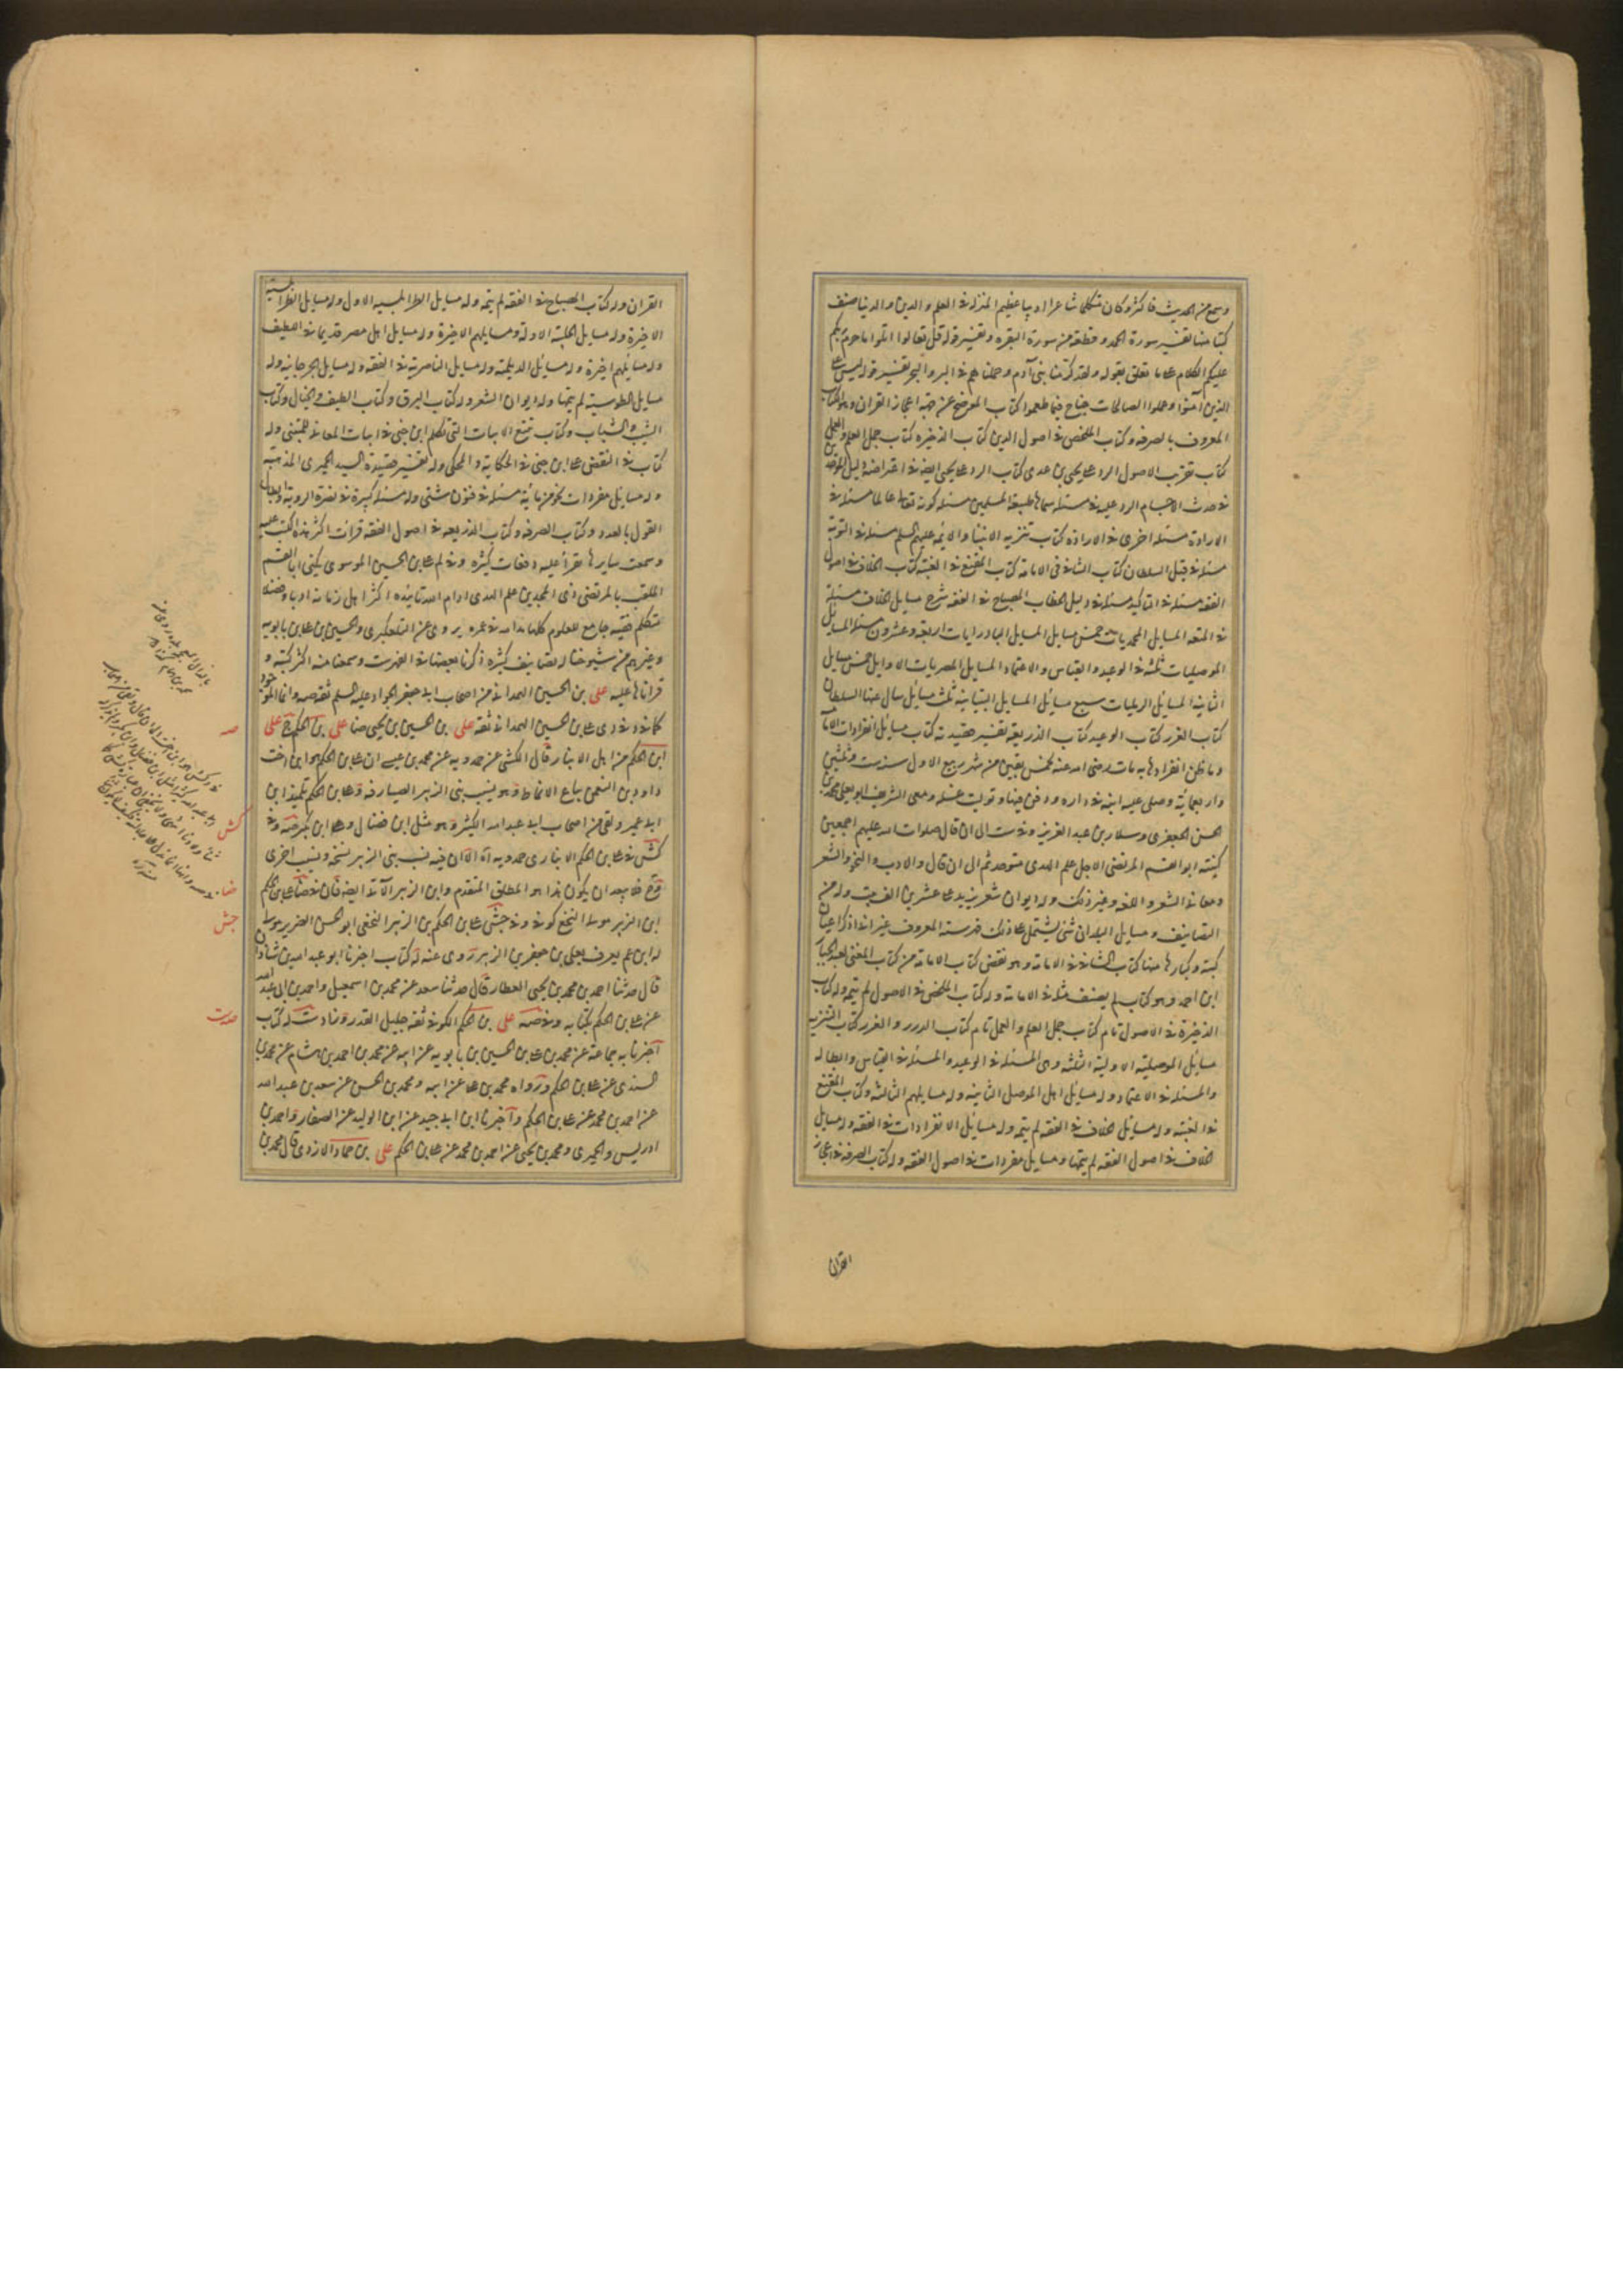 وسمع من الحديث فاكثر وكان متكلما شاعرا اديبا عظيم المنزلة في العلم والدين والدنيا صنف
كتبا منها تفسير سورة الحمد وقطعة من سورة البقرة وتفسير قوله قل تعالوا اتلوا ما حرم ربكم
عليكم الكلام على ما تعلق بقوله ولقد كرمنا بني آدم وحملناهم في البر والبحر تفسير قوله ليس على
الذين آمنوا وعملوا الصالحات جناح فيما طعموا كتاب الموضح عن جهة اعجاز القران وهو الكتاب
المعروف بالصرفه وكتاب الملخص في اصول الدين كتاب الذخيره كتاب جمل العلم والعمل
كتاب تقريب الاصول الرد على يحيى بن عدى كتاب الرد على يحيى ايضا في اعتراضه دليل الموحد
في حدث الاجسام الرد عليه في مسئله سماها طبيعة المسلمين مسئله كونه تعالى عالما مسئله في
الارادة مسئله اخرى في الارادة كتاب تنزيه الانبيا والائمه عليهم السلم مسئله في التوبة
مسئله في قبل السلطان كتاب الشافي في الامامة كتاب المقنع في الغيبة كتاب الخلاف في اصول
الفقه مسئله في التاكيد مسئله في دليل الخطاب المصباح في الفقه شرح مسايل الخلاف مسئله
في المتعه المسايل المحمديات خمس مسايل المسايل البادرايات اربعة وعشرون مسئله المسايل
الموصليات ثلثه في الوعيد والقياس والاعتماد المسايل المصريات الاوايل خمس مسايل
الثانيه المسايل الرمليات سبع مسايل المسايل التبانيه ثلث مسايل سال عنها السلطان
كتاب الغرر كتاب الوعيد كتاب الذريعه تفسير قصيدته كتاب مسايل انفرادات الاما
وما ظن انفرادها به مات رضى الله عنه لخمس بقين من شهر ربيع الاول سنة ست وثلثين
واربعمائة وصلى عليه ابنه في داره ودفن فيها وتوليت غسله ومعى الشريف ابو يعلى محمد بن
الحسن الجعفرى وسلار بن عبد العزيز وفي ست الى ان قال صلوات الله عليهم اجمعين
كنيته ابو القسم المرتضى الاجل علم الهدى متوحد ثم الى ان قال والادب والنحو والشعر
ومعاني الشعر واللغه وغير ذلك وله ديوان شعر يزيد على عشرين الف بيت وله من
التصانيف ومسايل البلدان شئ يشتمل على ذلك فهرسته المعروف غير اني اذكر اعيان
كتبه وكبارها منها كتاب الشافي في الامامة وهو نقض كتاب الامامة من كتاب المغنى لعبد الجبار
ابن احمد وهو كتاب لم يصنف مثله في الامامة وله كتاب الملخص في الاصول لم يتمه وله كتاب
الذخيرة في الاصول تام كتاب جمل العلم والعمل تام كتاب الدرر والغرر كتاب التنزيه
مسايل الموصلية الاولية الثلثه وهى المسئله في الوعيد والمسئله في القياس وابطاله
والمسئله في الاعتماد وله مسايل اهل الموصل الثانيه وله مسايلهم الثالثه وكتاب المقنع
في الغيبة وله مسايل الخلاف في الفقه لم يتمه وله مسايل الانفرادات في الفقه وله مسايل
الخلاف في اصول الفقه لم يتمها ومسايل مفردات في اصول الفقه وله كتاب الصرفه في اعجاز
القران
القران وله كتاب المصباح في الفقه لم يتمه وله مسايل الطرابلسيه الاول وله مسايل الطرابلسية
الاخيرة وله مسايل الحلبية الاولة ومسايلهم الاخيرة وله مسايل اهل مصر قديما في اللطيف
وله مسايلهم اخيرة وله مسائل الديلمية وله مسايل الناصرية في الفقه وله مسايل الجرجانيه وله
مسايل الطوسية لم يتمها وله ديوان الشعر وله كتاب البرق وكتاب الطيف والخيال وكتاب
الشيب والشباب وكتاب تتبع الابيات التى تكلم ابن جنى في ابيات المعاني للمتنبى وله
كتاب في النقض على ابن جنى في الحكاية والمحكى وله تفسير قصيدة السيد الحميرى المذهبة
وله مسايل مفردات نحو من مائة مسئله في فنون شتى وله مسئله كبيرة في نصرة الروية وابطال
القول بالعدد وكتاب الصرفه وكتاب الذريعه في اصول الفقه قرات اكثر هذه الكتب عليه
وسمعت سايرها تقرأ عليه دفعات كثيره وفي لم على بن الحسين الموسوى يكنى ابا القسم
الملقب بالمرتضى ذى المجدين علم الهدى ادام الله تاييده اكثر اهل زمانه ادبا وفضلا
متكلم فقيه جامع للعلوم كلها مد الله في عمره يروى عن التلعكبرى والحسين بن على بن بابويه
وغيرهم من شيوخنا له تصانيف كثيره ذكرنا بعضها في الفهرست وسمعنا منه اكثر كتبه و
قراناها عليه على بن الحسين الهمداني من اصحاب ابي جعفر الجواد عليه السلم ثقه صه وانما الموجود
كما في د دى على بن الحسين الهمداني ثقة على بن الحسين بن يحيى ضا على بن الحكم ج على
ابن الحكم من اهل الانبار قال الكشى عن حمدويه عن محمد بن عيسى ان على بن الحكم هو ابن اخت
داود بن النعمن بياع الانماط وهو نسيب بنى الزبير الصيارفه وعلى بن الحكم تلميذ ابن
ابي عمير ولقى من اصحاب ابي عبد الله الكثير وهو مثل ابن فضال وابن بكير صه وفي
كش في على بن الحكم الانبارى حمدويه آه الا ان فيه نسب بنى الزبير نسخه ونسيب اخرى
ابن الزبير مولى النخع كوفي وفي جش على بن الحكم بن الزبير النخعى ابو الحسن الضرير مولى
له ابن عم يعرف بعلى بن جعفر بن الزبير روى عنه له كتاب اخبرنا ابو عبد الله بن شاذان
قال حدثنا احمد بن محمد بن يحيى العطار قال حدثنا سعد عن محمد بن اسمعيل واحمد بن ابى عبد الله
عن على بن الحكم بكتابه وفي صه على بن الحكم الكوفي ثقه جليل القدر وزاد ست له كتاب
اخبرنا به جماعة عن محمد بن على بن الحسين بن بابويه عن ابيه عن محمد بن احمد بن هشام عن محمد بن
السندى عن على بن الحكم ورواه محمد بن على عن ابيه ومحمد بن الحسن عن سعد بن عبد الله
عن احمد بن محمد عن على بن الحكم واخبرنا ابن ابي جيد عن ابن الوليد عن الصفار واحمد بن
ادريس والحميرى ومحمد بن يحيى عن احمد بن محمد عن على بن الحكم على بن حماد الازدى قال محمد بن
صه
كش
ضا
جش
صه ست